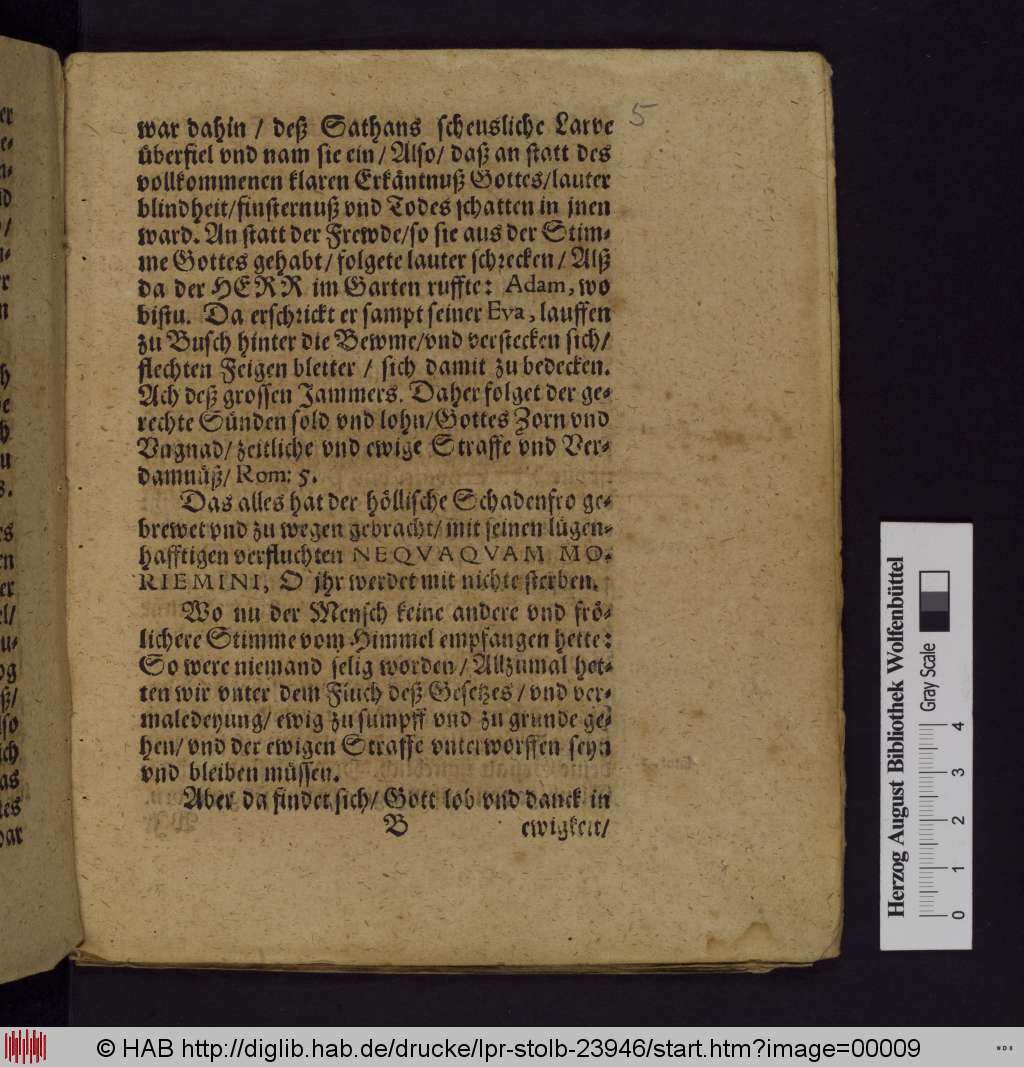 5
war dahin / deß Sathans scheusliche Larve
überfiel vnd nam sie ein / Also / daß an statt des
vollkommenen klaren Erkäntnuß Gottes/lauter
blindheit/finsternuß vnd Todes schatten in jnen
ward. An statt der Frewde/so sie aus der Stim-
me Gottes gehabt / folgete lauter schrecken / Alß
da der HERR im Garten ruffte: Adam, wo
bistu. Da erschrickt er sampt seiner Eva, lauffen
zu Busch hinter die Bewme/vnd verstecken sich/
flechten Feigen bletter / sich damit zu bedecken.
Ach deß grossen Jammers. Daher folget der ge-
rechte Sünden sold vnd lohn/Gottes Zorn vnd
Vngnad/ zeitliche vnd ewige Straffe vnd Ver-
damnüß/ Rom: 5.
Das alles hat der höllische Schadenfro ge-
brewet vnd zu wegen gebracht/ mit seinen lügen-
hafftigen verfluchten NEQVAQVAM MO-
RIEMINI, O jhr werdet mit nichte sterben.
Wo nu der Mensch keine andere vnd frö-
lichere Stimme vom Himmel empfangen hette:
So were niemand selig worden / Allzumal het-
ten wir vnter dem Fluch deß Gesetzes / vnd ver-
maledeyung/ ewig zu sumpff vnd zu grunde ge-
hen/ vnd der ewigen Straffe vnterworffen seyn
vnd bleiben müssen.
Aber da findet sich/ Gott lob vnd danck in
B ewigkeit/
Herzog August Bibliothek Wolfenbüttel
Gray Scale
0 1 2 3 4
© HAB http://diglib.hab.de/drucke/lpr-stolb-23946/start.htm?image=00009